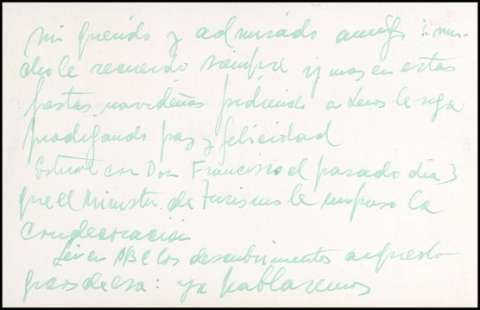 Mi querido y admirado amigo: mu-
cho le recuerdo siempre y mas en estas
fiestas navideñas pidiendo a Dios le siga
prodigando paz y felicidad
Estuve con Don Francisco el pasado día 3
que el Ministro de Turismo le impuso la
Condecoración
Lei en ABC los descubrimientos arqueolo-
gicos de esa: ya hablaremos